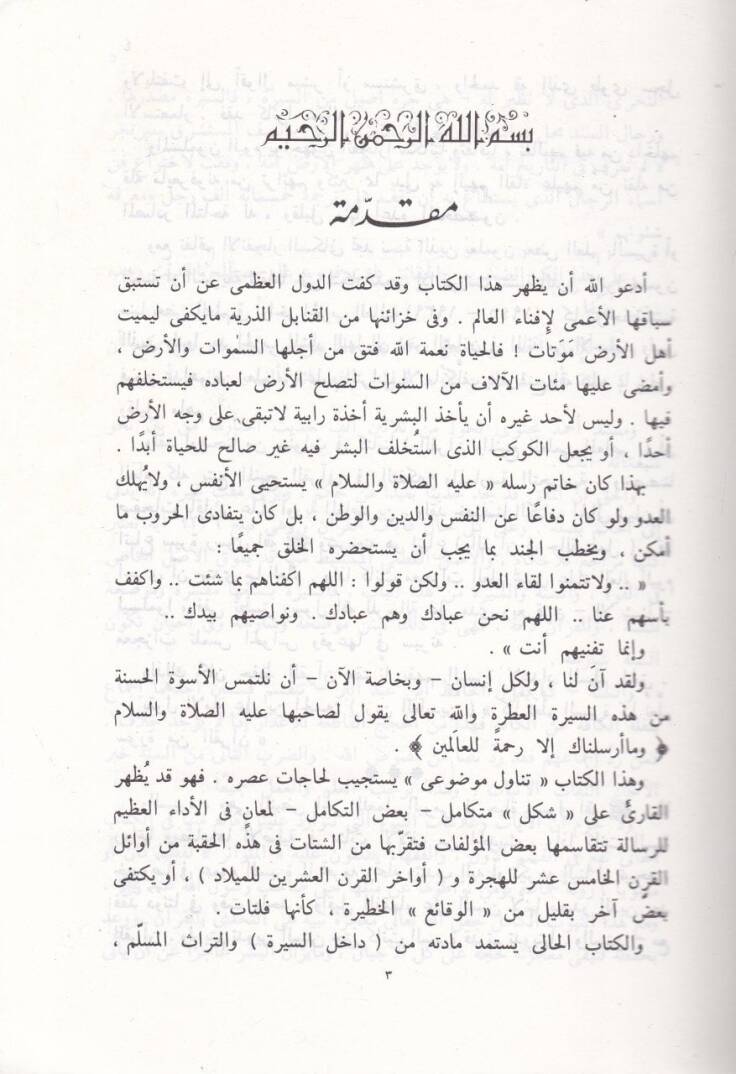 بسم الله الرحمن الرحيم
مقدّمة
أدعو الله أن يظهر هذا الكتاب وقد كفت الدول العظمى عن أن تستبق
سباقها الأعمى لإفناء العالم . وفى خزائنها من القنابل الذرية مايكفى ليميت
أهل الأرض مَوَتات ! فالحياة نعمة الله فتق من أجلها السموات والأرض ،
وأمضى عليها مئات الآلاف من السنوات لتصلح الأرض لعباده فيستخلفهم
فيها . وليس لأحد غيره أن يأخذ البشرية أخذة رابية لاتبقى على وجه الأرض
أحدًا ، أو يجعل الكوكب الذى استُخلف البشر فيه غير صالح للحياة أبدًا .
بهذا كان خاتم رسله « عليه الصلاة والسلام » يستحيى الأنفس ، ولايُهلك
العدو ولو كان دفاعًا عن النفس والدين والوطن ، بل كان يتفادى الحروب ما
أمكن ، ويخطب الجند بما يجب أن يستحضره الخلق جميعًا :
« .. ولاتتمنوا لقاء العدو .. ولكن قولوا : اللهم اكفناهم بما شئت .. واكفف
بأسهم عنا .. اللهم نحن عبادك وهم عبادك . ونواصيهم بيدك ..
وإنما تفنيهم أنت » .
ولقد آنَ لنا ، ولكل إنسان – وبخاصة الآن – أن نلتمس الأسوة الحسنة
من هذه السيرة العطرة والله تعالى يقول لصاحبها عليه الصلاة والسلام
﴿ وماأرسلناك إلا رحمةً للعالَمين ﴾ .
وهذا الكتاب « تناول موضوعى » يستجيب لحاجات عصره . فهو قد يُظهر
القارئَ على « شكل » متكامل – بعض التكامل – لمعان فى الأداء العظيم
للرسالة تتقاسمها بعض المؤلفات فتقرّبها من الشتات فى هذه الحقبة من أوائل
القرن الخامس عشر للهجرة و ( أواخر القرن العشرين للميلاد ) ، أو يكتفى
بعضٌ آخر بقليل من « الوقائع » الخطيرة ، كأنها فلتات .
والكتاب الحالى يستمد مادته من ( داخل السيرة ) والتراث المسلّم ،
٣